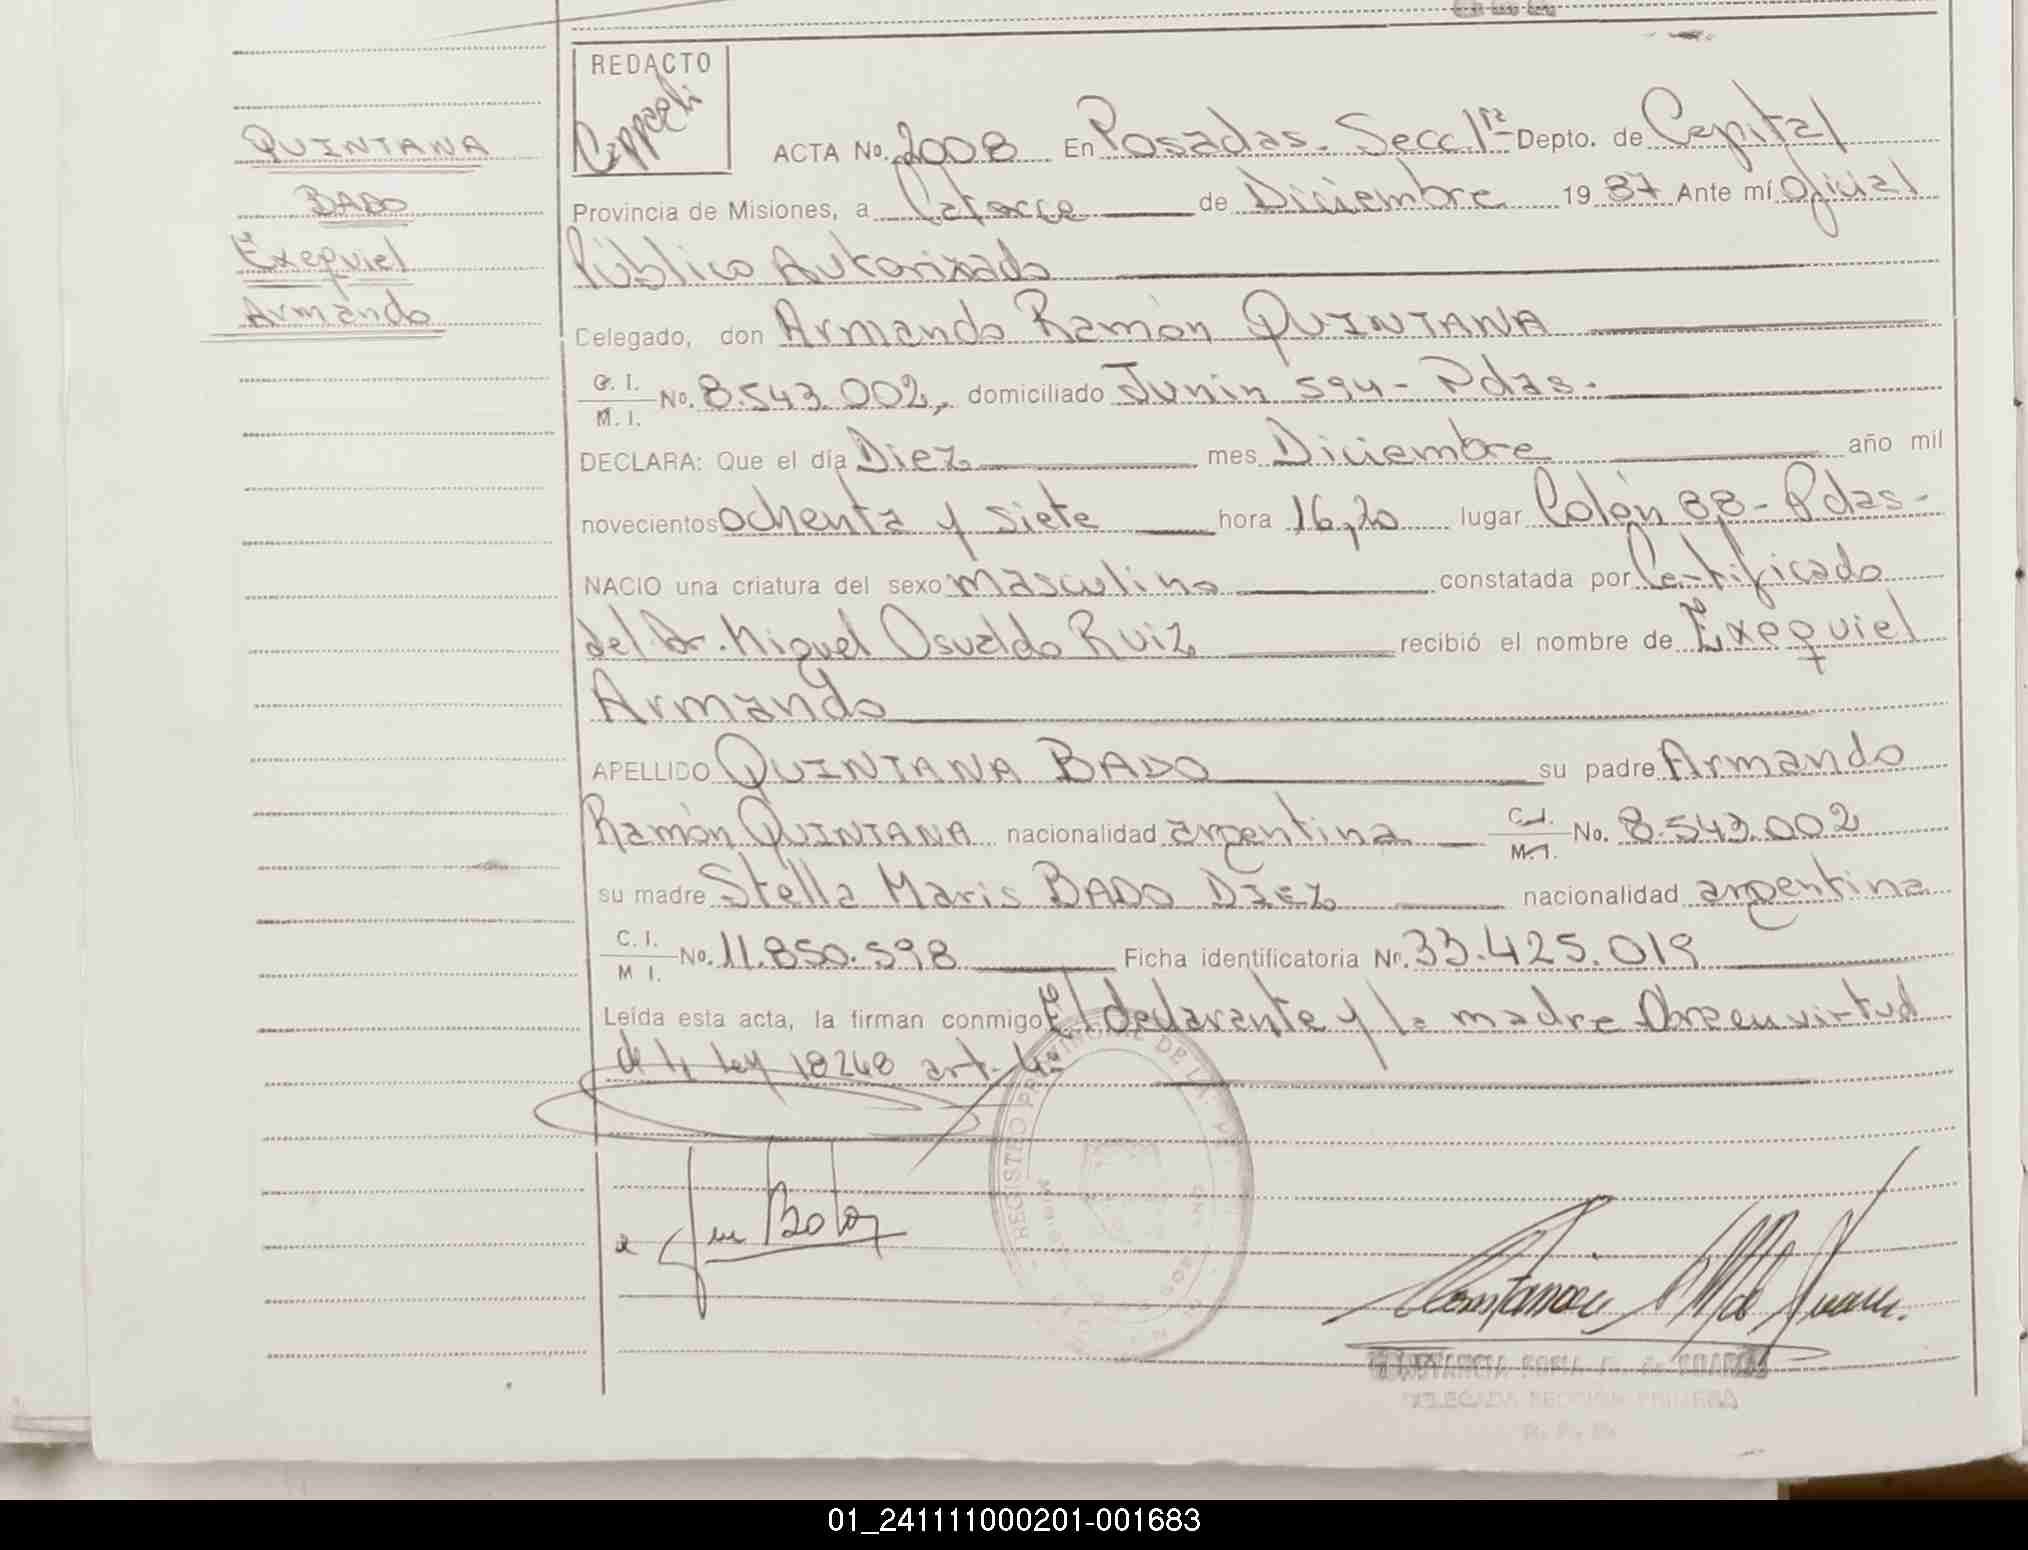 QUINTANA
BADO
Exequiel
Armando
REDACTO
ACTA No. 2008 En Posadas. Secc. 1ra Depto. de Capital
Provincia de Misiones, a Catorce de Diciembre 19 87 Ante mí Oficial
Público Autorizado
Celegado, don Armando Ramón QUINTANA
C. I.
M. I.
No. 8.543.002, domiciliado Junin 594 - Pdas.
DECLARA: Que el día Diez mes Diciembre año mil
novecientos ochenta y siete hora 16,20 lugar Colón 88 - Pdas -
NACIO una criatura del sexo masculino constatada por Certificado
del Dr. Miguel Osvaldo Ruiz recibió el nombre de Exequiel
Armando
APELLIDO QUINTANA BADO su padre Armando
Ramón QUINTANA nacionalidad argentina C.I. M.I. No. 8.543.002
su madre Stella Maris BADO DIEZ nacionalidad argentina
C. I.
M I.
No. 11.850.598 Ficha identificatoria No. 33.425.019
Leída esta acta, la firman conmigo El declarante y la madre Obra en virtud
de la ley 18248 art. 4º
REGISTRO PROVINCIAL DE LAS
DELEGADA SECCION PRIMERA
R. P. P.
01_241111000201-001683